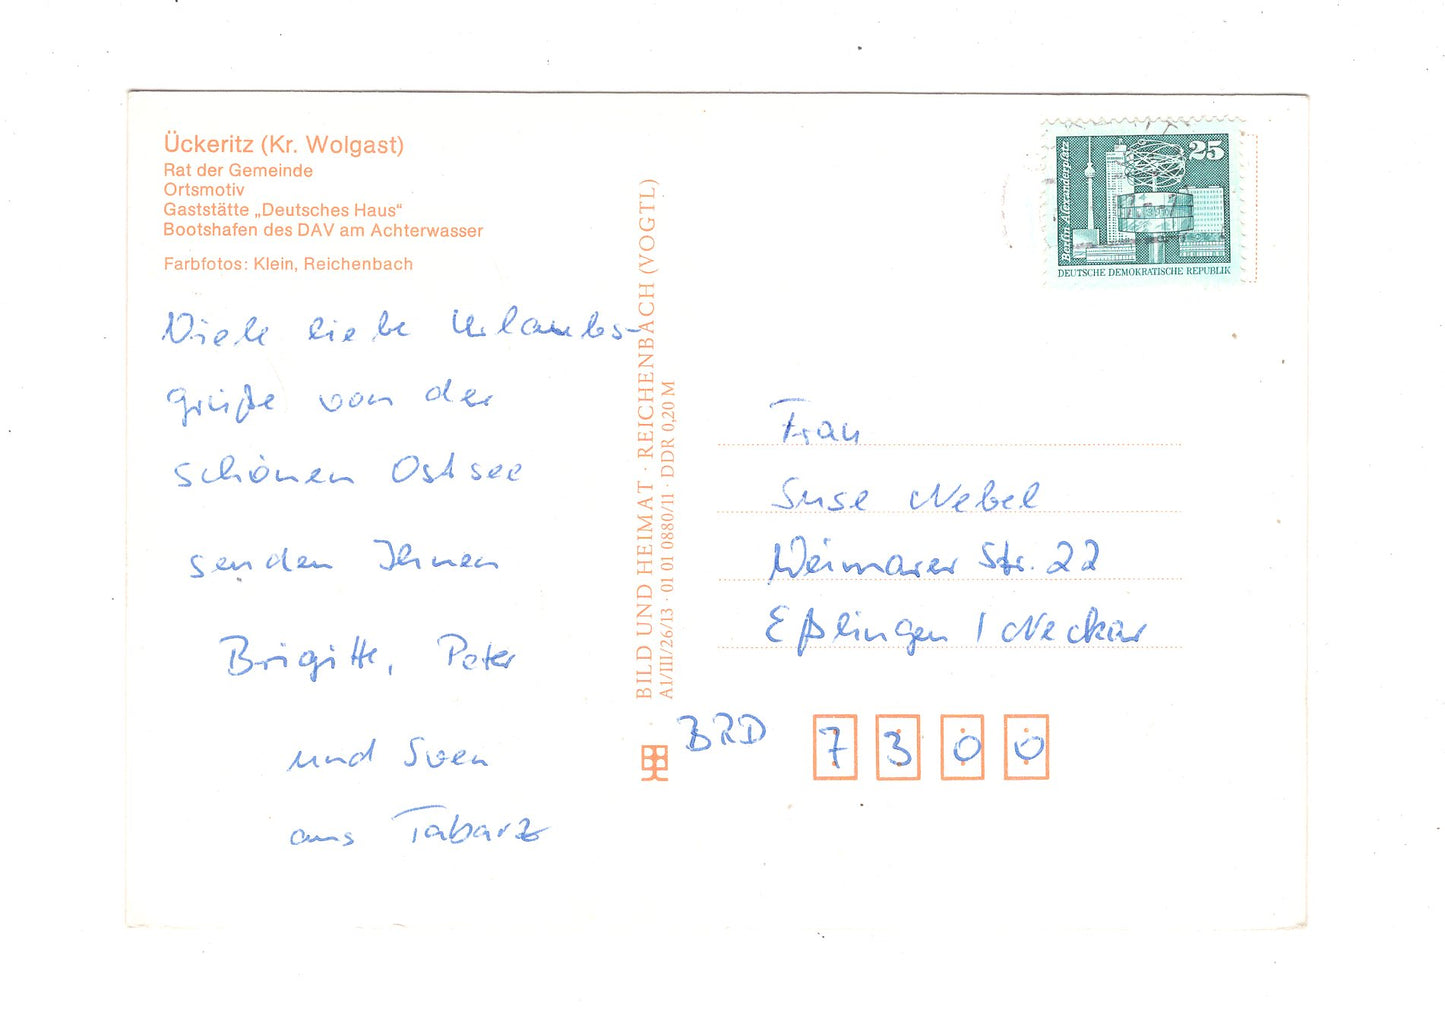 Ückeritz (Kr. Wolgast)
Rat der Gemeinde
Ortsmotiv
Gaststätte „Deutsches Haus“
Bootshafen des DAV am Achterwasser
Farbfotos: Klein, Reichenbach
Viele liebe Urlaubs-
grüße von der
schönen Ostsee
senden Ihnen
Brigitte, Peter
und Sven
aus Tabarz
BILD UND HEIMAT · REICHENBACH (VOGTL)
A1/III/26/13 · 01 01 0880/11 · DDR 0,20 M
25
Berlin Alexanderplatz
DEUTSCHE DEMOKRATISCHE REPUBLIK
Frau
Suse Nebel
Weimarer Str. 22
Eßlingen / Neckar
BRD 7300